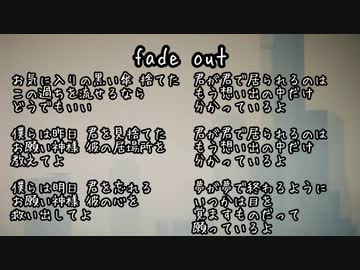 fade out
お気に入りの黒い傘 捨てた
この過ちを流せるなら
どうでもいい
僕らは昨日 君を見捨てた
お願い神様 彼の居場所を
教えてよ
僕らは明日 君を忘れる
お願い神様 彼の心を
救い出してよ
君が君で居られるのは
もう想い出の中だけ
分かっているよ
君が君で居られるのは
もう想い出の中だけ
分かっているよ
夢が夢で終わるように
いつかは目を
覚ますものだって
願っているよ